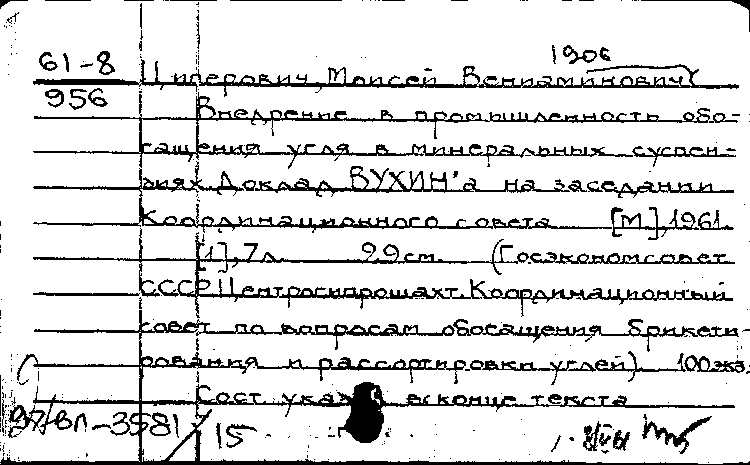 1906
61-8
956
Циперович, Моисей Вениаминович
Внедрение в промышленность обо-
гащения угля в минеральных суспен-
зиях. Доклад ВУХИН'а на заседании
Координационного совета [М.], 1961.
[1], 7 л. 29 см. (Госэкономсовет
СССР. Центрогипрошахт. Координационный
совет по вопросам обогащения брикети-
рования и рассортировки углей). 100 экз.
Сост. указ. в конце текста
15